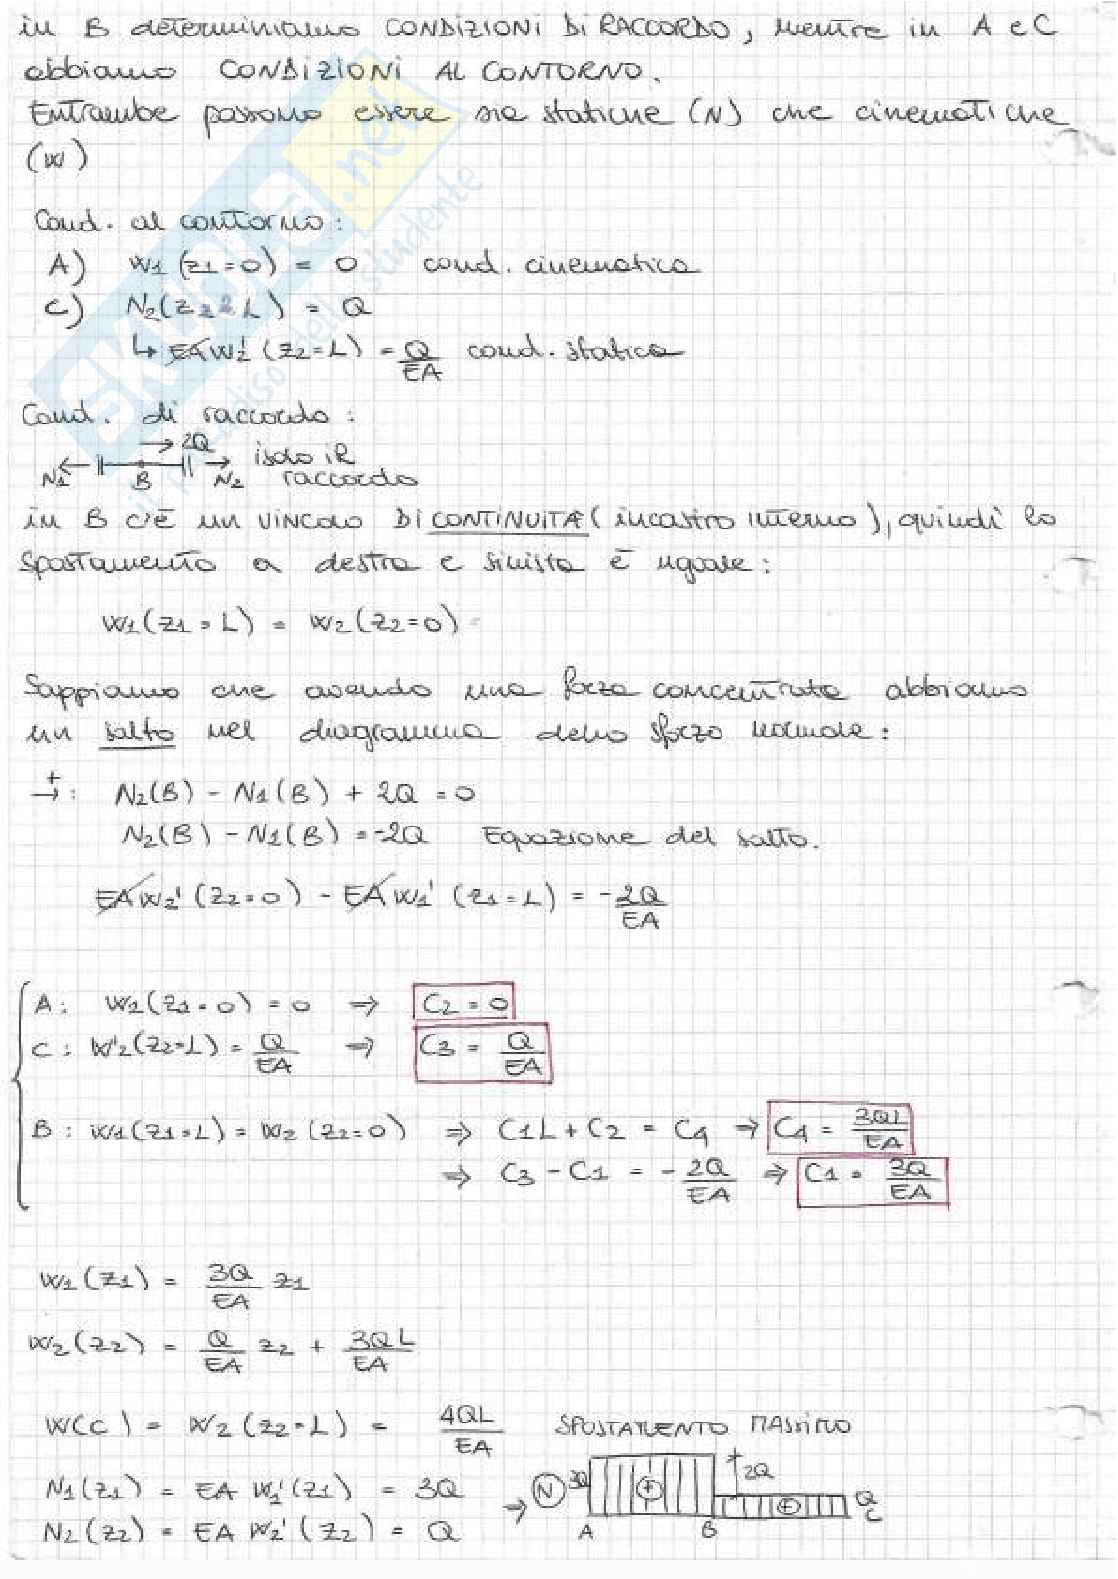 in B determiniamo CONDIZIONI DI RACCORDO, mentre in A e C
abbiamo CONDIZIONI AL CONTORNO.
Entrambe possono essere sia statiche (N) che cinematiche
(w)
Cond. al contorno:
A) w1 (z1=0) = 0 cond. cinematica
C) N2(z2=L) = Q
↳ EAw2' (z2=L) = Q/EA cond. statica
Cond. di raccordo:
→ 2Q
N1 B N2 isolo il
raccordo
in B c'è un VINCOLO DI CONTINUITÀ (incastro interno), quindi lo
spostamento a destra e sinista è uguale:
w1(z1=L) = w2(z2=0)
Sappiamo che avendo una forza concentrata abbiamo
un salto nel diagramma dello sforzo normale:
+→: N2(B) - N1(B) + 2Q = 0
N2(B) - N1(B) = -2Q Equazione del salto.
EAw2' (z2=0) - EAw1' (z1=L) = -2Q/EA
A: w1(z1=0) = 0 ⇒ C2 = 0
C: w'2(z2=L) = Q/EA ⇒ C3 = Q/EA
B: w1(z1=L) = w2(z2=0) ⇒ C1L + C2 = C4 ⇒ C4 = 3QL/EA
⇒ C3 - C1 = -2Q/EA ⇒ C1 = 3Q/EA
w1(z1) = 3Q/EA z1
w2(z2) = Q/EA z2 + 3QL/EA
w(C) = w2(z2=L) = 4QL/EA SPOSTAMENTO MASSIMO
N1(z1) = EA w1'(z1) = 3Q
N2(z2) = EA w2'(z2) = Q
⇒ N 3Q + 2Q + Q
A B C
SKUOLA.net
il paradiso dello studente